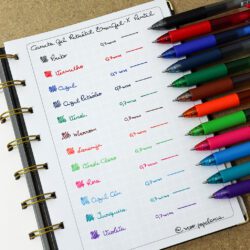 Caneta Gel Retrátil EnerGel-X Pentel
Preto 0,7 mm
Vermelho 0,7 mm
Azul 0,7 mm
Azul Petróleo 0,7 mm
Verde 0,7 mm
Marrom 0,7 mm
Laranja 0,7 mm
Verde Claro 0,7 mm
Rosa 0,7 mm
Azul Céu 0,7 mm
Turquesa 0,7 mm
Violeta 0,7 mm